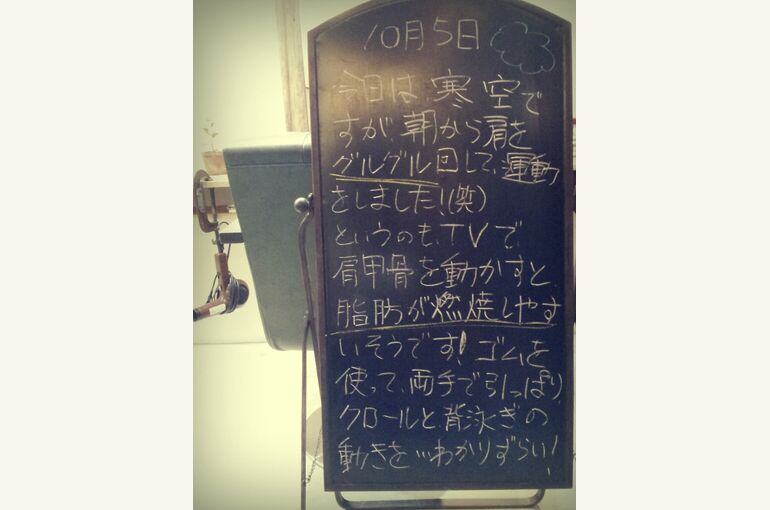 10月5日
今日は、寒空で
すが、朝から肩を
グルグル回して、運動
をしました!(笑)
というのも、TVで、
肩甲骨を動かすと、
脂肪が燃焼しやす
いそうです!ゴムを
使って、両手で引っぱり
クロールと、背泳ぎの
動きを…わかりずらい!